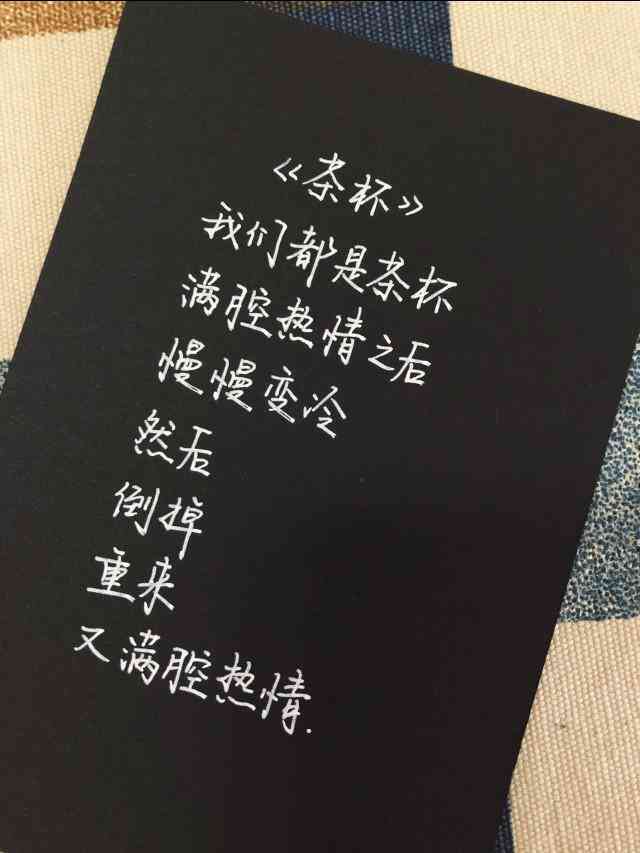 《茶杯》
我们都是茶杯
满腔热情之后
慢慢变冷
然后
倒掉
重来
又满腔热情.